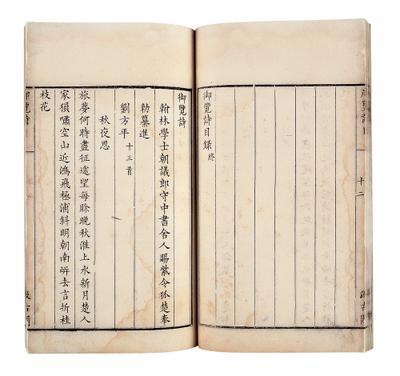 十二
御覽詩目錄終
御覽詩
翰林學士朝議郎守中書舍人賜紫令狐楚奉
勅纂進
劉方平 十三首
秋夜思
旅夢何時盡征途望每賒晚秋淮上水新月楚人
家猿嘯空山近鴻飛極浦斜明朝南岸去言折桂
枝花
御覽詩